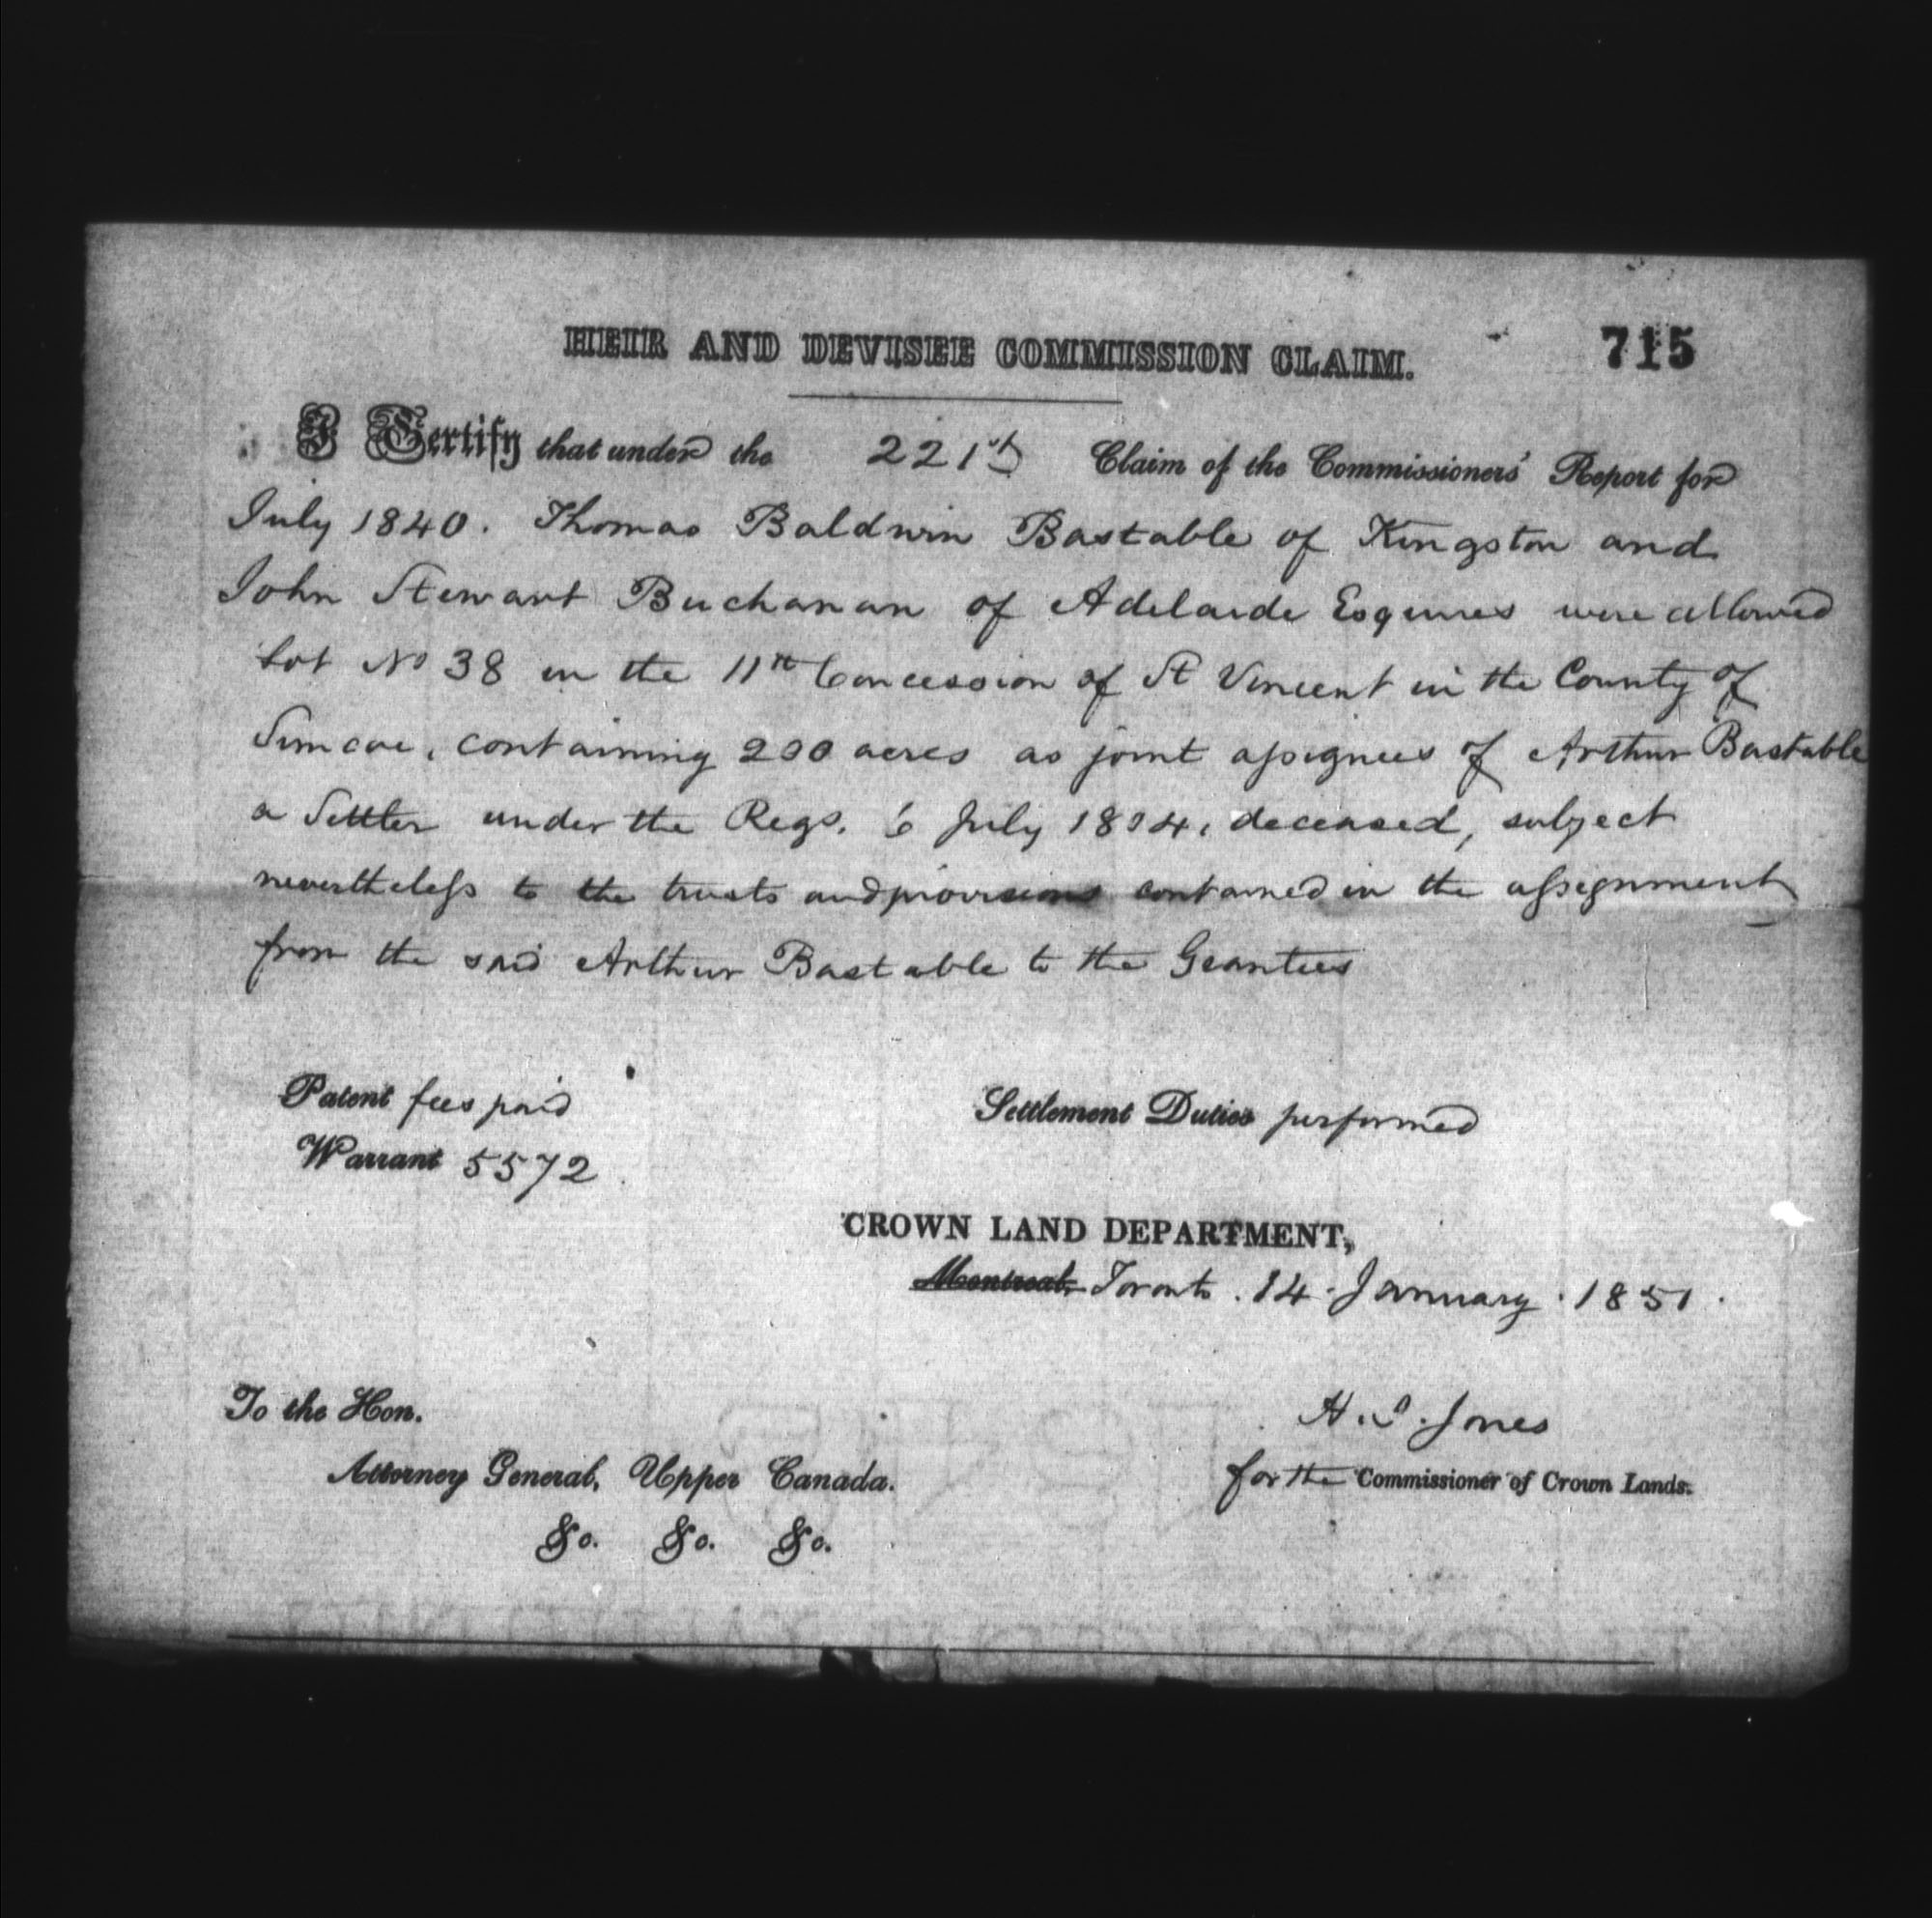 HEIR AND DEVISEE COMMISSION CLAIM.
715
I Certify that under the 221st Claim of the Commissioners' Report for
July 1840. Thomas Baldwin Bastable of Kingston and
John Stewart Buchanan of Adelaide Esquires were allowed
Lot No 38 in the 11th Concession of St Vincent in the County of
Simcoe, containing 200 acres as joint assignees of Arthur Bastable
a Settler under the Regs. 6 July 1804, deceased, subject
nevertheless to the trusts and provisions contained in the assignment
from the said Arthur Bastable to the Grantees
Patent fees paid
Settlement Duties performed
Warrant 5572
CROWN LAND DEPARTMENT,
Montreal, Toronto. 14 January. 1851.
To the Hon.
Attorney General, Upper Canada.
&c. &c. &c.
H. J. Jones
for the Commissioner of Crown Lands.